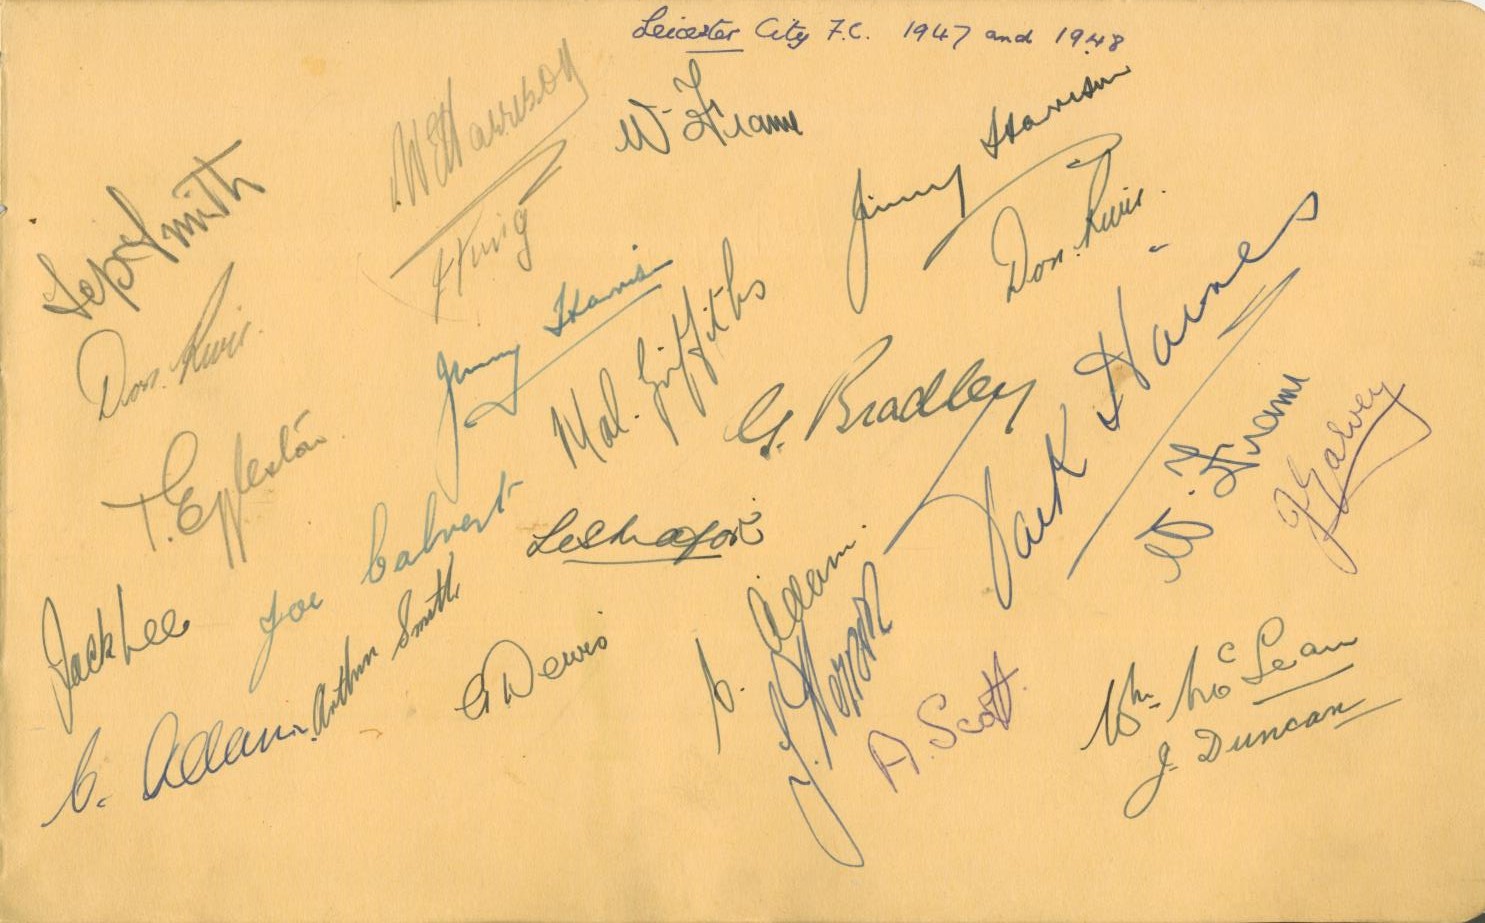 Leicester City F.C. 1947 and 1948
W Harrison
W. Frame
Jimmy Harrison
Sep Smith
King
Don. Revie.
Don. Revie.
Jimmy Harrison
Mal. Griffiths
G. Bradley
Jack Haines
W. Frame
J Garvey
T. Eggleston
Joe Calvert
C. Adam
Jack Lee
Arthur Smith
G Dewis
A. Scott.
Wm. McLean
J. Duncan
C. Adam